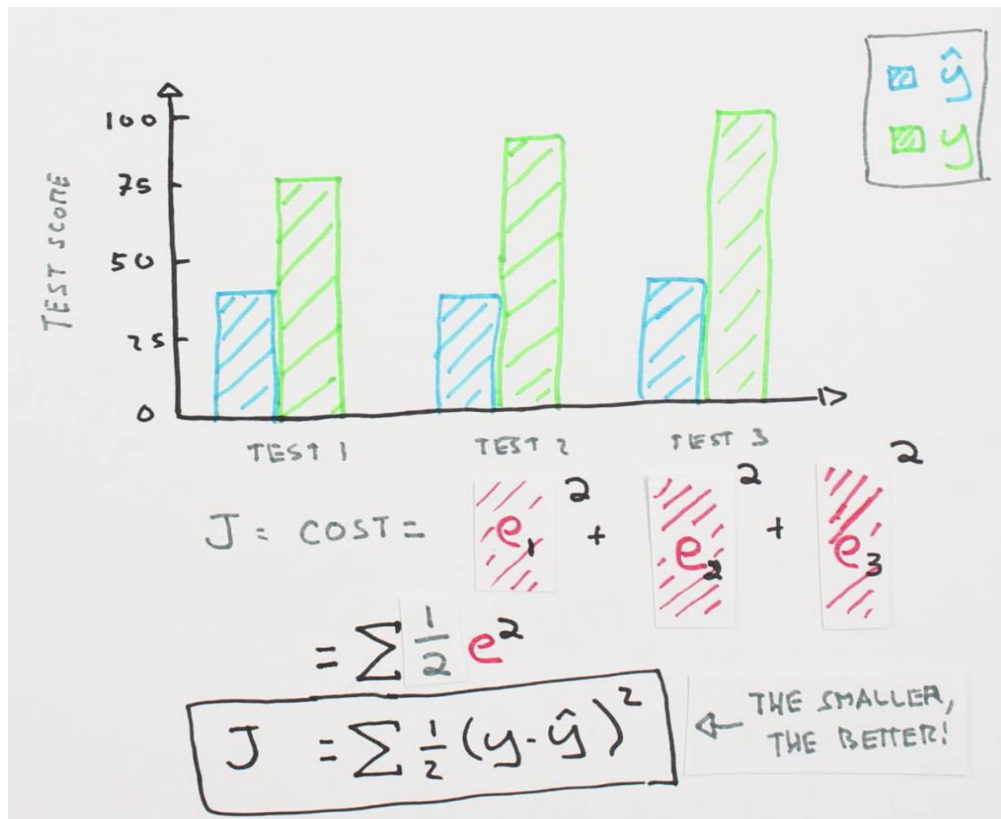 ŷ
y
TEST SCORE
100
75
50
25
0
TEST 1 TEST 2 TEST 3
J = COST = e₁² + e₂² + e₃²
= ∑ 1/2 e²
J = ∑ 1/2 (y-ŷ)²
← THE SMALLER,
THE BETTER!